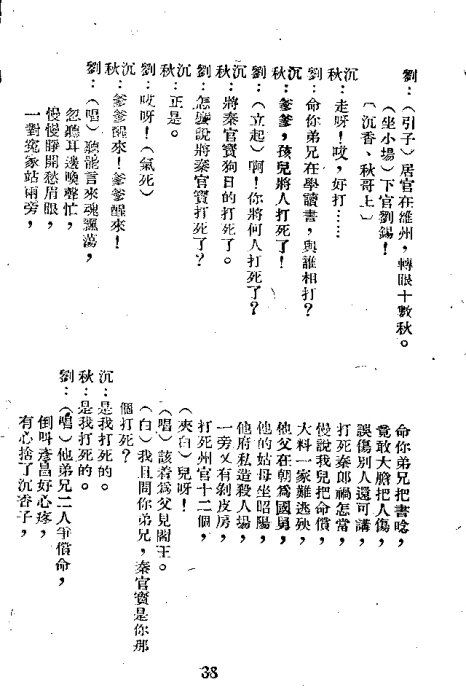 劉：（引子）居官在維州，轉眼十數秋。
（坐小場）下官劉錫！
〔沉香、秋哥上〕
沉秋：走呀！哎，好打……
劉：命你弟兄在學讀書，與誰相打？
沉秋：爹爹，孩兒將人打死了！
劉：（立起）啊！你將何人打死了？
沉秋：將秦官寶狗日的打死了。
劉：怎麼說將秦官寶打死了？
沉秋：正是。
劉：哎呀！（氣死）
沉秋：爹爹醒來！爹爹醒來！
劉：（唱）聽說言來魂飄蕩，
忽聽耳邊喚聲忙，
慢慢睜開愁眉眼，
一對冤家站兩旁，
命你弟兄把書唸，
竟敢大膽把人傷，
誤傷別人還可講，
打死秦郎禍怎當，
慢說我兒把命償，
大料一家難逃殃，
他父在朝爲國舅，
他的姑母坐昭陽，
他府私造殺人場，
一旁又有剝皮房，
打死州官十二個，
（夾白）兒呀！
（唱）該着爲父見閻王。
（白）我且問你弟兄，秦官寶是你那
個打死？
沉：是我打死的。
秋：是我打死的。
劉：（唱）他弟兄二人爭償命，
倒叫彥昌好心疼，
有心捨了沉香子，
38